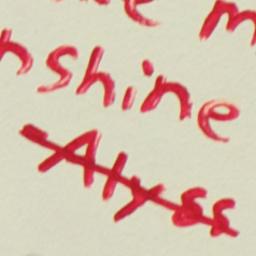 m
nshine
Alyss